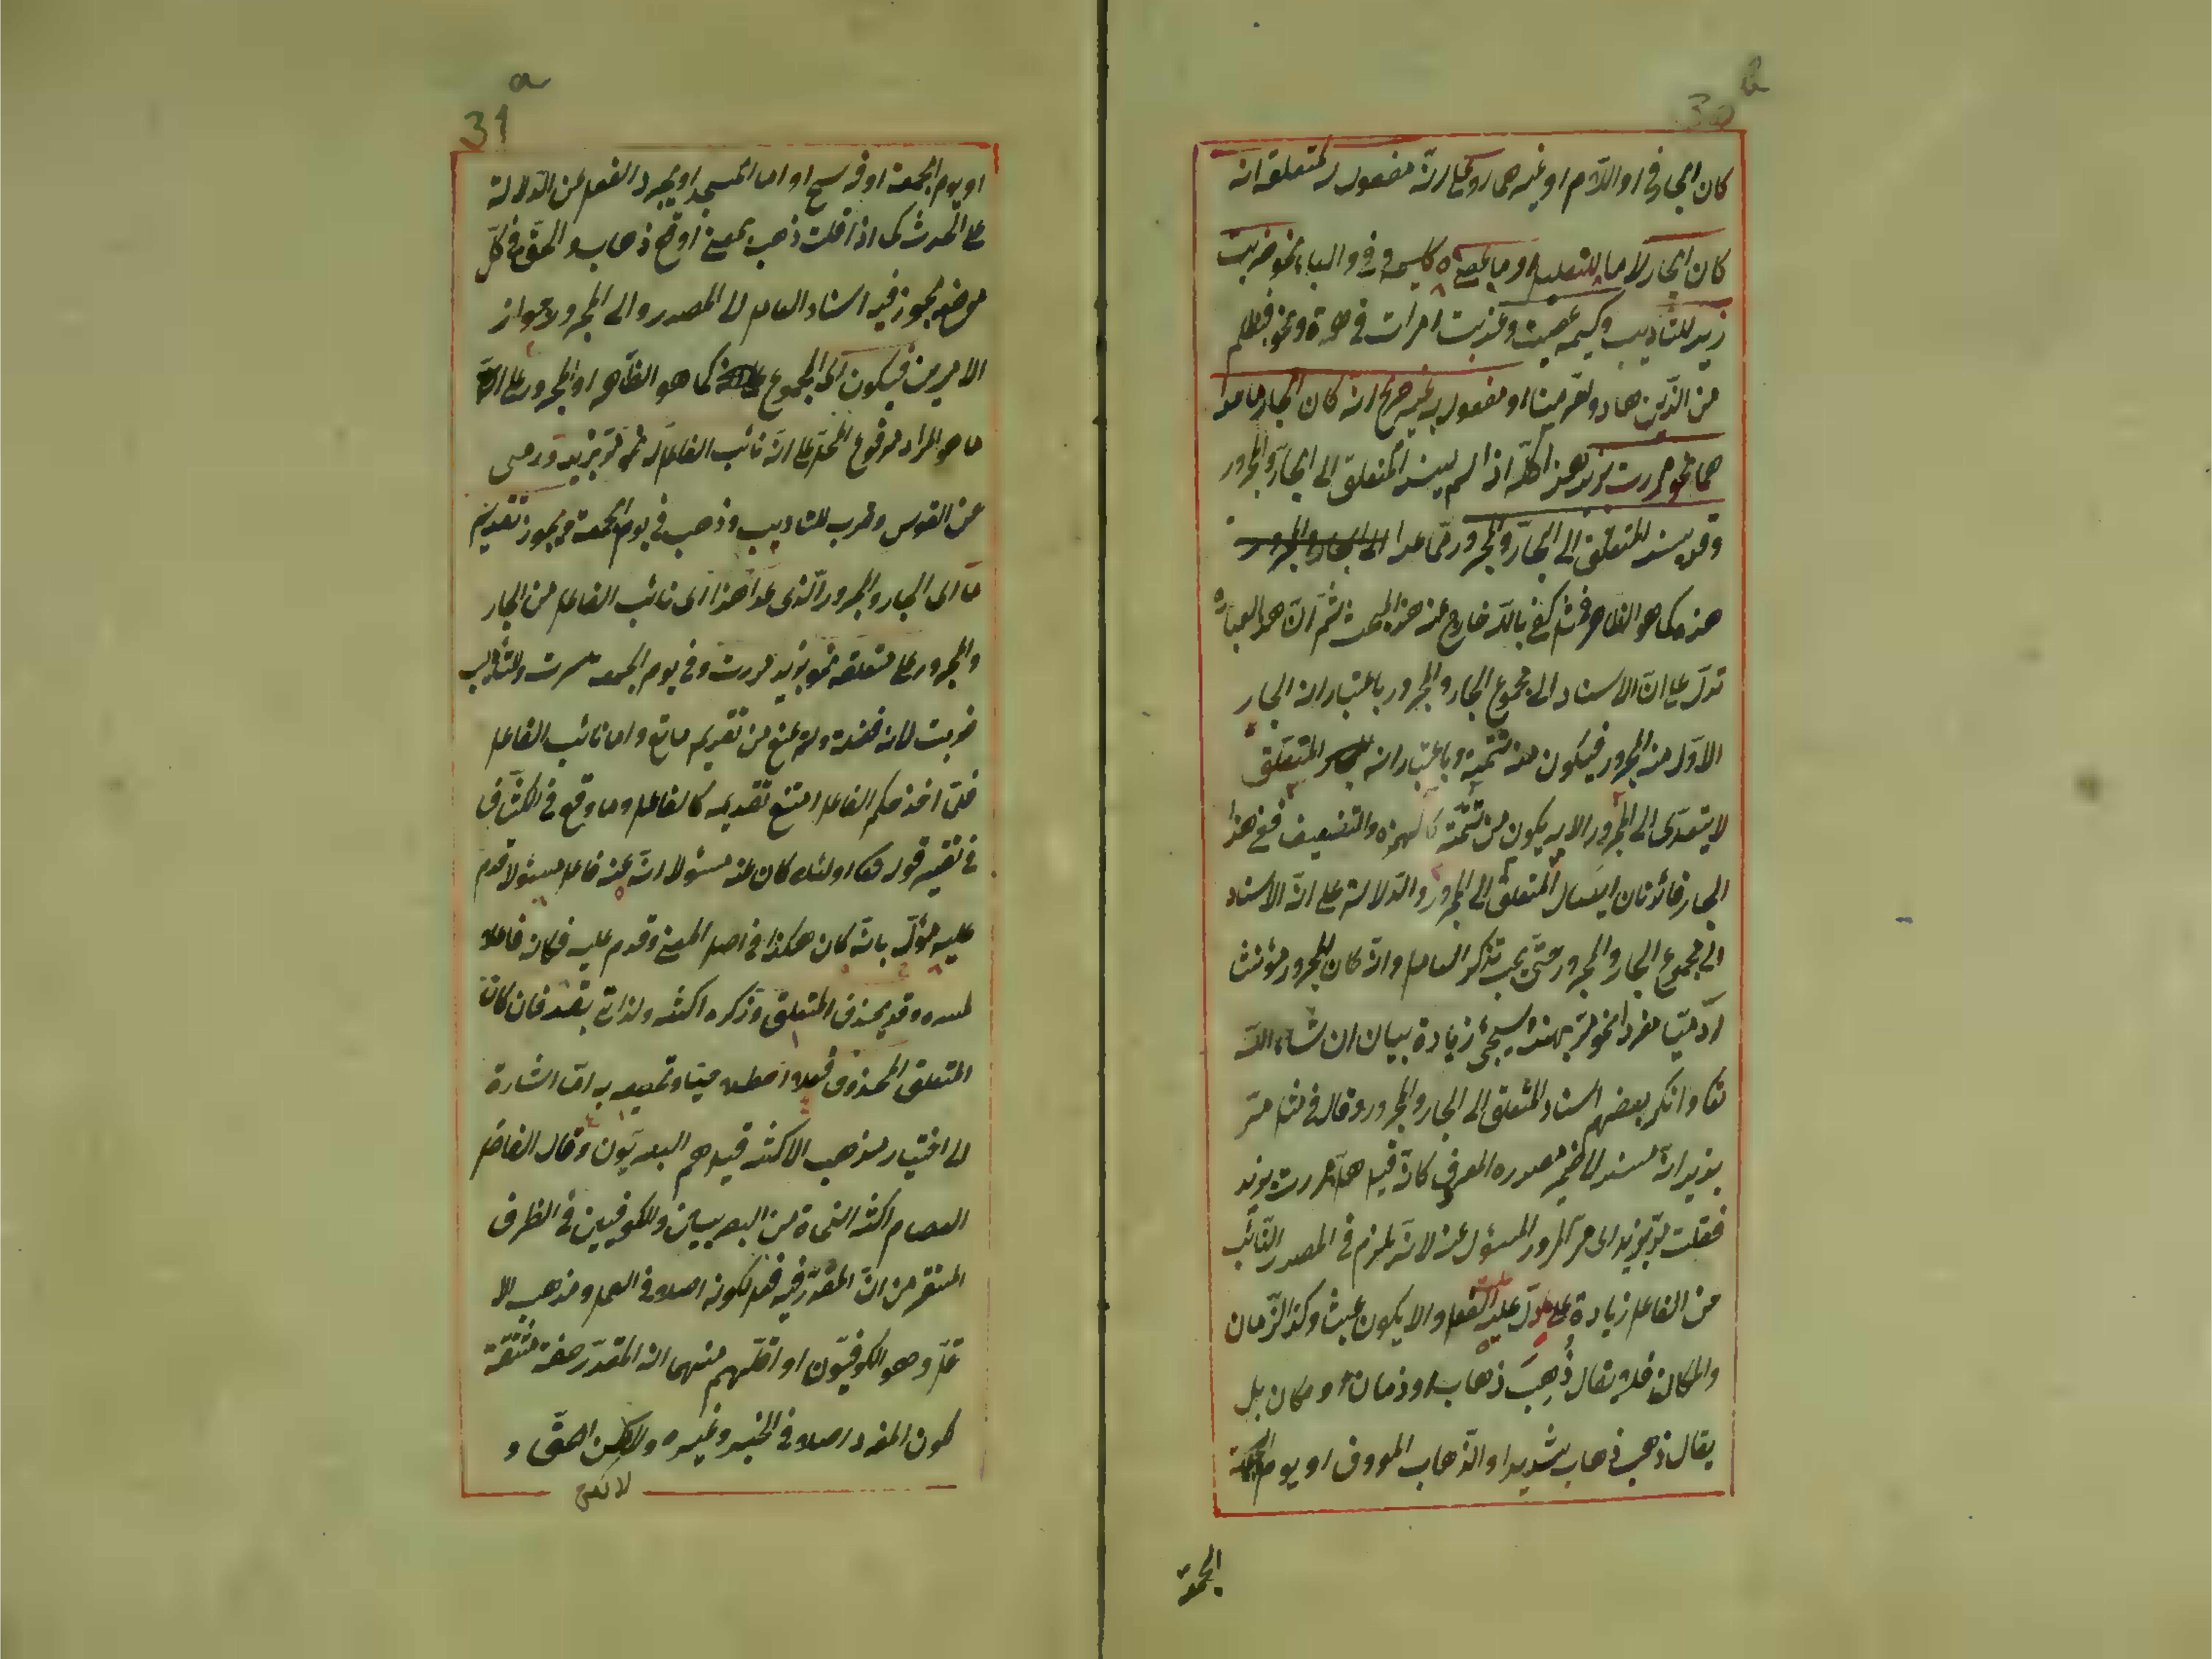 30b
كان الجار في او اللام او غيرهما روعي انه مفعول له لمتعلقه ان
كان الجار لاما للتعليل او ما بمعناه كلميه وفي والباء نحو ضربت
زيد للتاديب وكيمه عصيت وعذبت امرات في هرة ونحو فبظلم
من الذين هادوا حرمنا او مفعول به غير صريح ان كان الجار ما عدا
هما نحو مررت بزيد هذا كله اذا لم يسند المتعلق الى الجار والمجرور
وقد يسند المتعلق الى الجار والمجرور مما عدا الى الجار والمجرور
هذه كما هو الظاهر في مثل كفى بالله خارج عن هذا المبحث ثم ان هو العبارة
تدل على ان الاسناد الى مجموع الجار والمجرور باعتبار ان الجار
الاول من المجرور فيكون من تتمة وباعتبار انه المتعلق
لا يتعدى الى المجرور الا به يكون من تتمة كالهمزة والتضعيف ففي هذا
الجار فائدتان ايصال المتعلق الى المجرور والدلالة على ان الاسناد
الى مجموع الجار والمجرور حتى يجب تذكر العامل وان كان المجرور مؤنث
ادميا مفردا نحو مر بهند سيجئ زيادة بيان ان شاء الله
تعا وانكر بعضهم اسناد المتعلق الى الجار والمجرور وقال في مثل مر
بزيد انه مسند الى ضمير مصدره المعرف كانه قيل هلا مررت بزيد
فقلت مر بزيد اى مر المرور المسؤل عنه لانه يلزم في المصدر النائب
من الفاعل زيادة على ما دل عليه الفعل والا يكون عبث وكذا الزمان
والمكان فلا يقال ذُهِبَ ذهاب او زمان او مكان بل
يقال ذهب ذهاب شديد او الذهاب المعروف او يوم الجمعة
الجمعة
31a
او يوم الجمعة او فرسخ او امام المسجد او يجرد الفعل عن الدلالة
على الحدث كما اذا قلت ذهب بمعنى اوقع ذهاب والحق في كل
موضع يجوز فيه اسناد العامل الى المصدر والى المجرور جواز
الامرين فيكون اى المجموع كما هو الظاهر او المجرور على ان
ما هو المراد مرفوع المحل على انه نائب الفاعل له نحو مر بزيد ورمى
عن القوس وضرب للتاديب وذهب في يوم الجمعة ويجوز تقديم
ما اى الجار والمجرور الذى عدا هذا اى نائب الفاعل من الجار
والمجرور على متعلقه نحو بزيد مررت وفي يوم الجمعة سرت وللتاديب
ضربت لانه فضلة ولم يمنع من تقديم مانع واما نائب الفاعل
فلما اخذ حكم الفاعل امتنع تقديمه كالفاعل وما وقع في الكشاف
في تفسير قوله تعا اولئك كان عنه مسئولا ان عنه فاعل مسئولا قدم
عليه مؤل بانه كان هكذا في اصل المعنى وقدم عليه فكان فاعلا
لمسده وقد يحذف المتعلق وذكره اكثر ولذا اتى بقد فان كان
المتعلق المحذوف فعلا اصطلاحيا وتعبيره به اما اشارة
الى اختيار مذهب الاكثر قيل هم البصريون وقال الفاضل
العصام اكثر النحاة من البصريين والكوفيين في الظرف
المستقر من ان المقدر فيه فعل لكونه اصلا في العمل ومذهب الا
قل وهو الكوفيون او اقلهم منهما ان المقدر صفة مشتقة
لكون المفرد اصلا في الخبر وغيره ولكن الحق و
لا يخفى